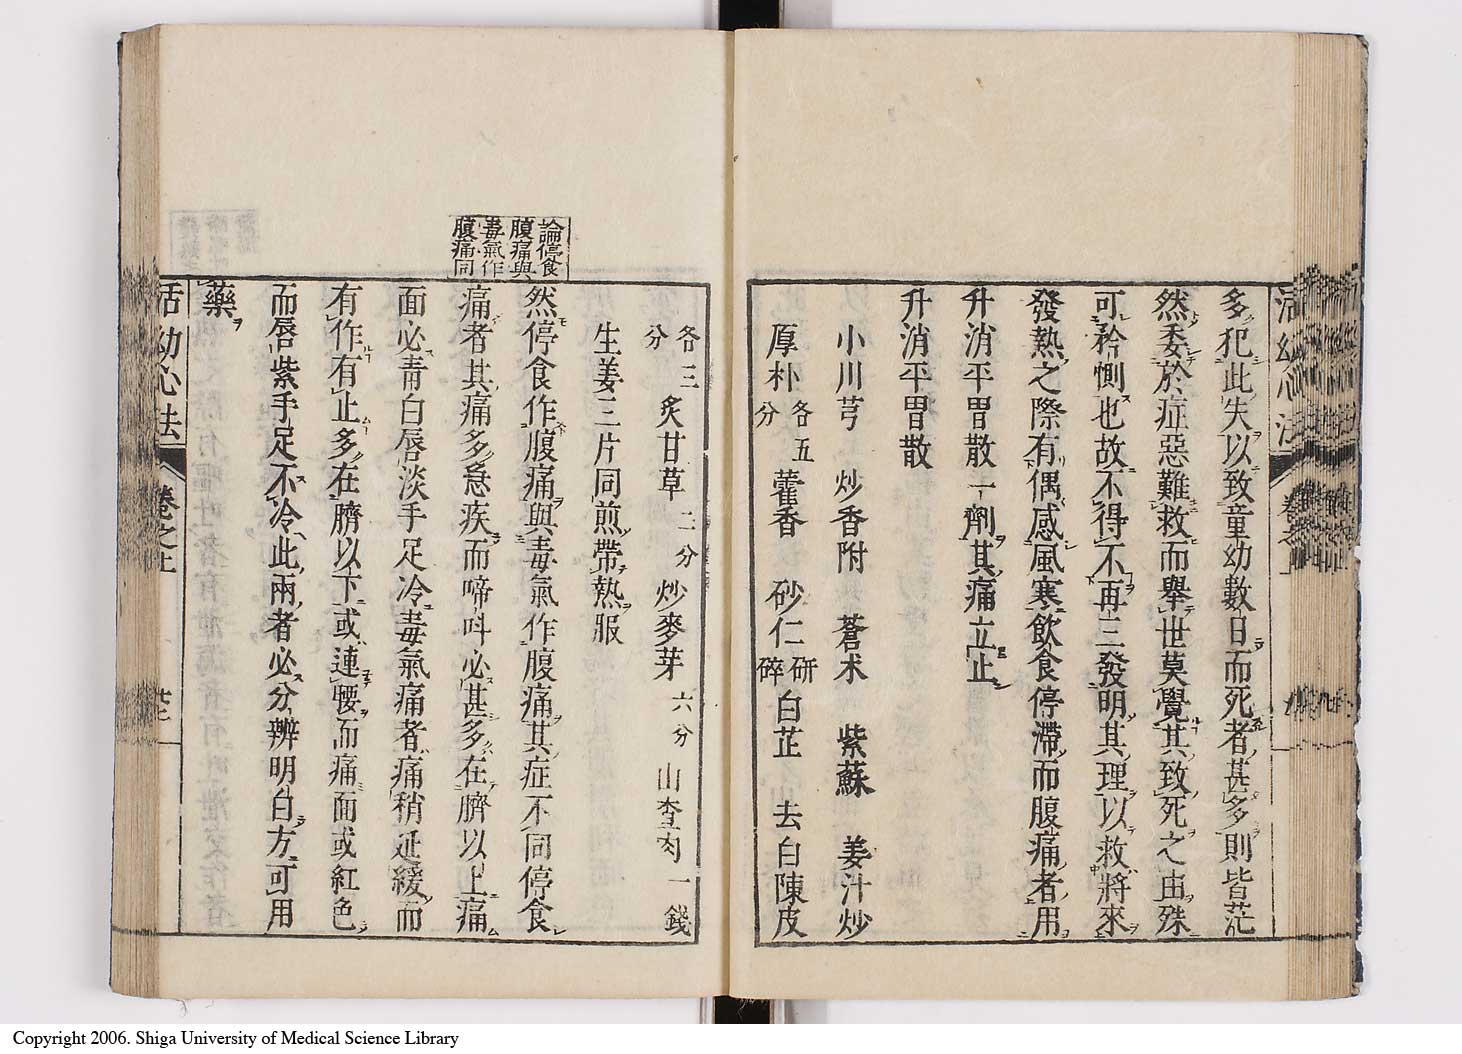 多犯此失以致童幼數日而死者甚多則皆茫
然委於症惡難救而舉世莫覺其致死之由殊
可矜惻也故不得不再三發明其理以救將來
發熱之際有偶感風寒飲食停滯而腹痛者用
升消平胃散一劑其痛立止
升消平胃散
小川芎 炒香附 蒼术 紫蘇 姜汁炒
厚朴 各五分 藿香 砂仁 研碎 白芷 去白陳皮
各三分 炙甘草 二分 炒麥芽 六分 山查肉 一錢
生姜三片同煎帶熱服
論停食
腹痛與
毒氣作
腹痛同
然停食作腹痛與毒氣作腹痛其症不同停食
痛者其痛多急疾而啼呌必甚多在臍以上痛
面必靑白唇淡手足冷毒氣痛者痛稍延緩而
有作有止多在臍以下或連腰而痛面或紅色
而唇紫手足不冷此兩者必分辨明白方可用
藥
活幼心法 卷之上
Copyright 2006. Shiga University of Medical Science Library